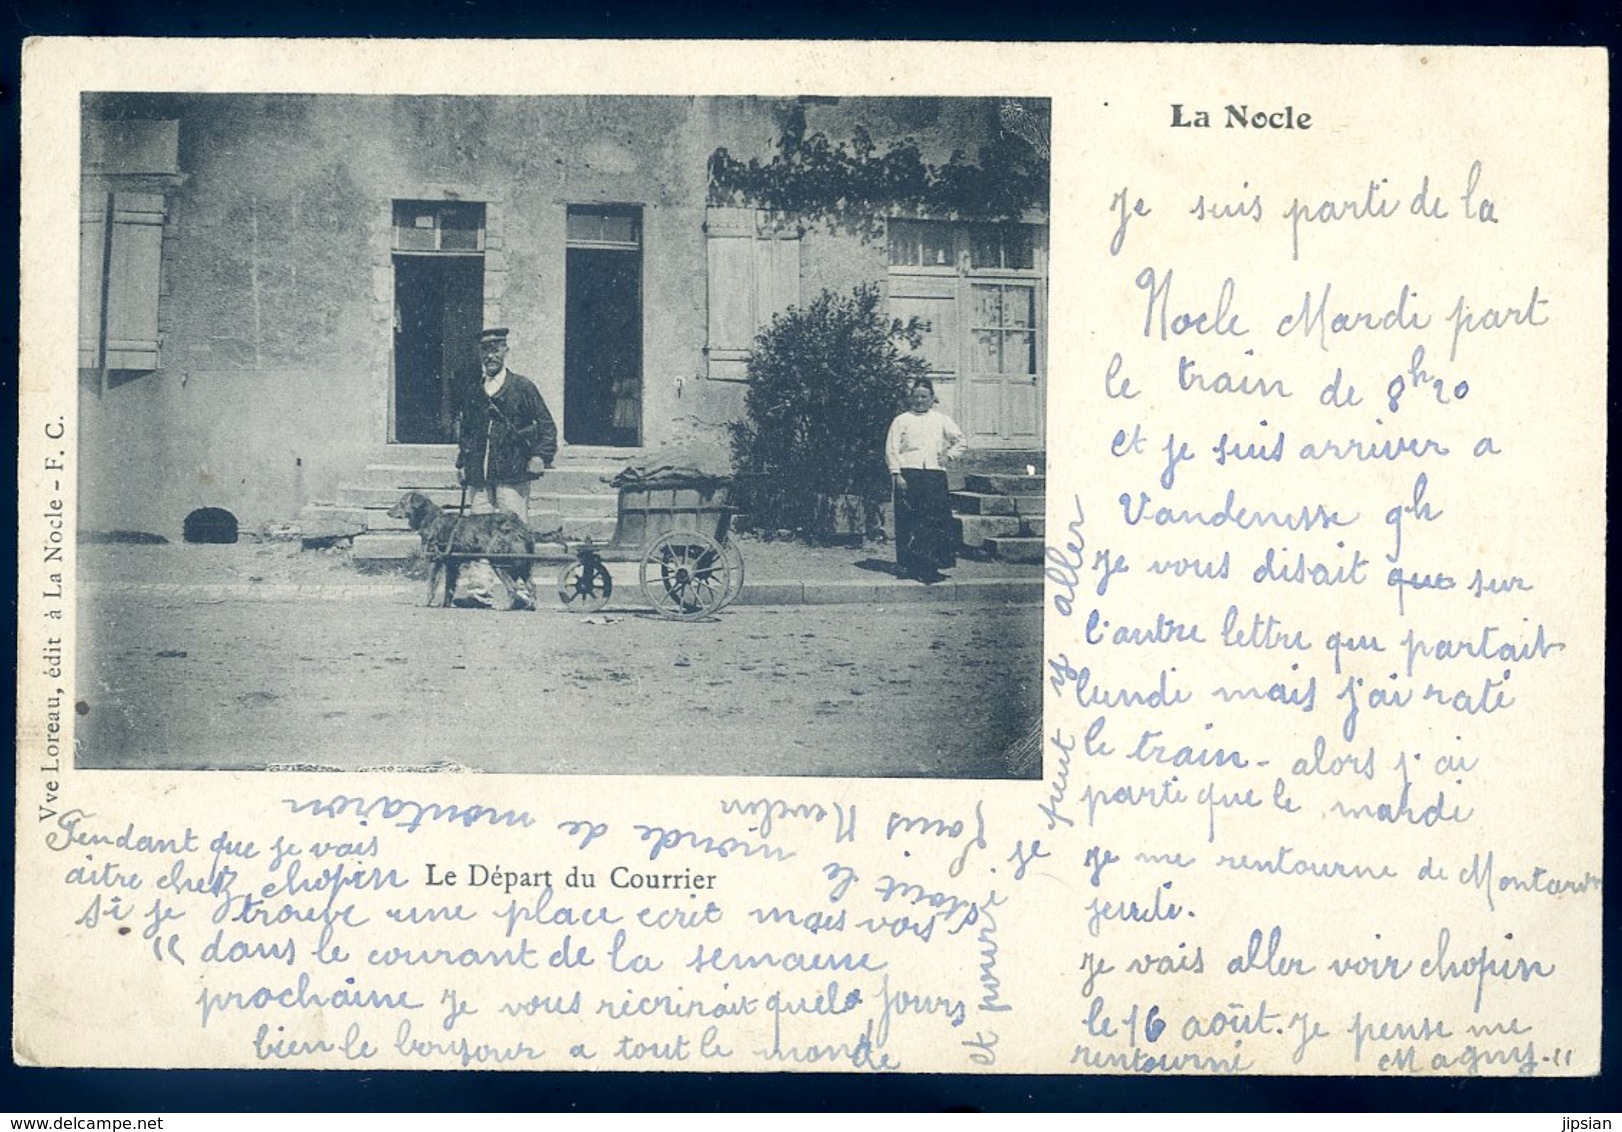 La Nocle
Je suis parti de la
Nocle Mardi part
le train de 8h20
et je suis arriver a
Vandenesse 9h
Je vous disait que sur
l'autre lettre que partait
lundi mais j'ai raté
le train - alors j'ai
parti que le mardi
Je me rentourne de Montaron
jeudi.
Je vais aller voir chopin
le 16 août. Je pense me
rentourné Magny - "
Pendant que je vais
aitre chez chopin
si je trouve une place ecrit mois vois
" dans le courant de la semaine
prochaine Je vous récrirait quelq jours
bien le bonjour a tout le monde
et pour je peut y aller
tout le monde de montaron
Louis Nevelin
Le Départ du Courrier
Vve Loreau, édit à La Nocle - F. C.
jipsian